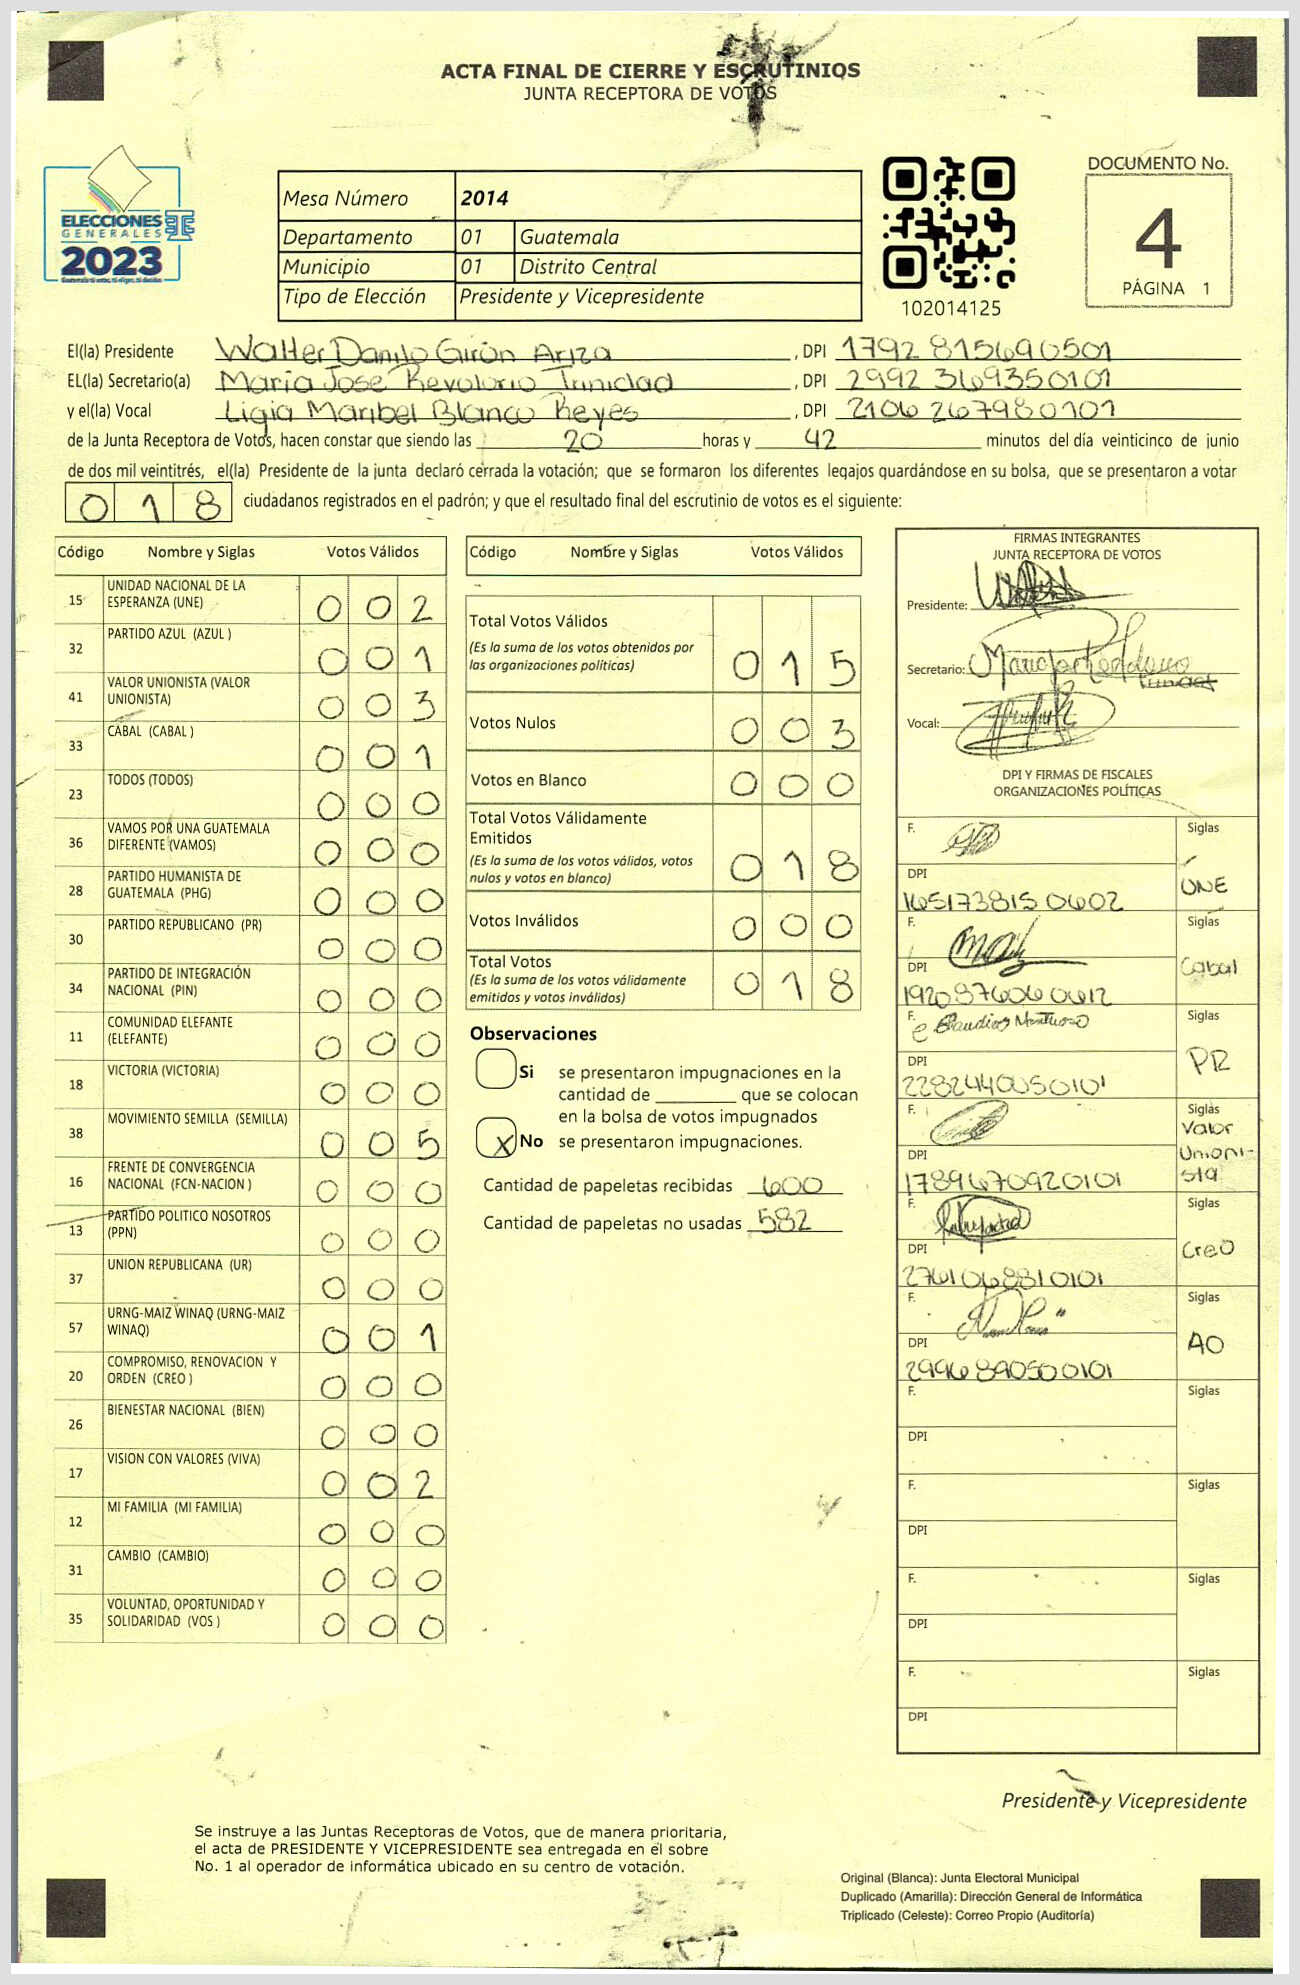 ACTA FINAL DE CIERRE Y ESCRUTINIOS
JUNTA RECEPTORA DE VOTOS
ELECCIONES
GENERALES
2023
Mesa Número 2014
Departamento 01 Guatemala
Municipio 01 Distrito Central
Tipo de Elección Presidente y Vicepresidente
102014125
DOCUMENTO No.
4
PÁGINA 1
El(la) Presidente Walter Danilo Girón Ariza , DPI 1792 815690501
EL(la) Secretario(a) Maria Jose Revolorio Trinidad , DPI 2992 369350101
y el(la) Vocal Ligia Maribel Blanco Reyes , DPI 2106 267980101
de la Junta Receptora de Votos, hacen constar que siendo las 20 horas y 42 minutos del día veinticinco de junio
de dos mil veintitrés, el(la) Presidente de la junta declaró cerrada la votación; que se formaron los diferentes legajos quardándose en su bolsa, que se presentaron a votar
018 ciudadanos registrados en el padrón; y que el resultado final del escrutinio de votos es el siguiente:
Código Nombre y Siglas Votos Válidos
15 UNIDAD NACIONAL DE LA ESPERANZA (UNE) 0 0 2
32 PARTIDO AZUL (AZUL ) 0 0 1
41 VALOR UNIONISTA (VALOR UNIONISTA) 0 0 3
33 CABAL (CABAL ) 0 0 1
23 TODOS (TODOS) 0 0 0
36 VAMOS POR UNA GUATEMALA DIFERENTE (VAMOS) 0 0 0
28 PARTIDO HUMANISTA DE GUATEMALA (PHG) 0 0 0
30 PARTIDO REPUBLICANO (PR) 0 0 0
34 PARTIDO DE INTEGRACIÓN NACIONAL (PIN) 0 0 0
11 COMUNIDAD ELEFANTE (ELEFANTE) 0 0 0
18 VICTORIA (VICTORIA) 0 0 0
38 MOVIMIENTO SEMILLA (SEMILLA) 0 0 5
16 FRENTE DE CONVERGENCIA NACIONAL (FCN-NACION ) 0 0 0
13 PARTIDO POLITICO NOSOTROS (PPN) 0 0 0
37 UNION REPUBLICANA (UR) 0 0 0
57 URNG-MAIZ WINAQ (URNG-MAIZ WINAQ) 0 0 1
20 COMPROMISO, RENOVACION Y ORDEN (CREO ) 0 0 0
26 BIENESTAR NACIONAL (BIEN) 0 0 0
17 VISION CON VALORES (VIVA) 0 0 2
12 MI FAMILIA (MI FAMILIA) 0 0 0
31 CAMBIO (CAMBIO) 0 0 0
35 VOLUNTAD, OPORTUNIDAD Y SOLIDARIDAD (VOS ) 0 0 0
Código Nombre y Siglas Votos Válidos
Total Votos Válidos
(Es la suma de los votos obtenidos por
las organizaciones políticas) 0 1 5
Votos Nulos 0 0 3
Votos en Blanco 0 0 0
Total Votos Válidamente
Emitidos
(Es la suma de los votos válidos, votos
nulos y votos en blanco) 0 1 8
Votos Inválidos 0 0 0
Total Votos
(Es la suma de los votos válidamente
emitidos y votos inválidos) 0 1 8
Observaciones
Si se presentaron impugnaciones en la
cantidad de ________ que se colocan
en la bolsa de votos impugnados
x No se presentaron impugnaciones.
Cantidad de papeletas recibidas 600
Cantidad de papeletas no usadas 582
FIRMAS INTEGRANTES
JUNTA RECEPTORA DE VOTOS
Presidente:
Secretario:
Vocal:
DPI Y FIRMAS DE FISCALES
ORGANIZACIONES POLÍTICAS
F. Siglas
DPI UNE
165173815 0602
F. Siglas
DPI Cabal
192087606 0612
F. Siglas
DPI PR
2282440050101
F. Siglas
Valor
DPI Unioni-
1789670920101 sta
F. Siglas
DPI Creo
2761068810101
F. Siglas
DPI AO
2996890500101
F. Siglas
DPI
F. Siglas
DPI
F. Siglas
DPI
F. Siglas
DPI
Presidente y Vicepresidente
Se instruye a las Juntas Receptoras de Votos, que de manera prioritaria,
el acta de PRESIDENTE Y VICEPRESIDENTE sea entregada en el sobre
No. 1 al operador de informática ubicado en su centro de votación.
Original (Blanca): Junta Electoral Municipal
Duplicado (Amarilla): Dirección General de Informática
Triplicado (Celeste): Correo Propio (Auditoría)